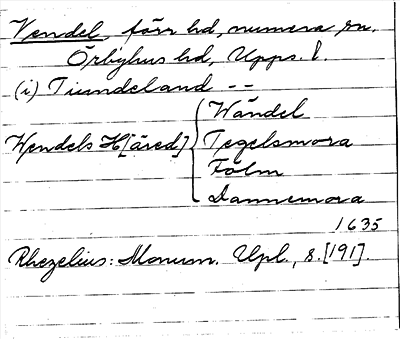 Vendel, förr hd, numera sn.
Örbyhus hd, Upps. l.
(i) Tiundeland --
Wändel
Wendels H[äred] Tegelsmora
Folm
Dannemora
1635
Rhezelius: Monum. Upl., s. [191].